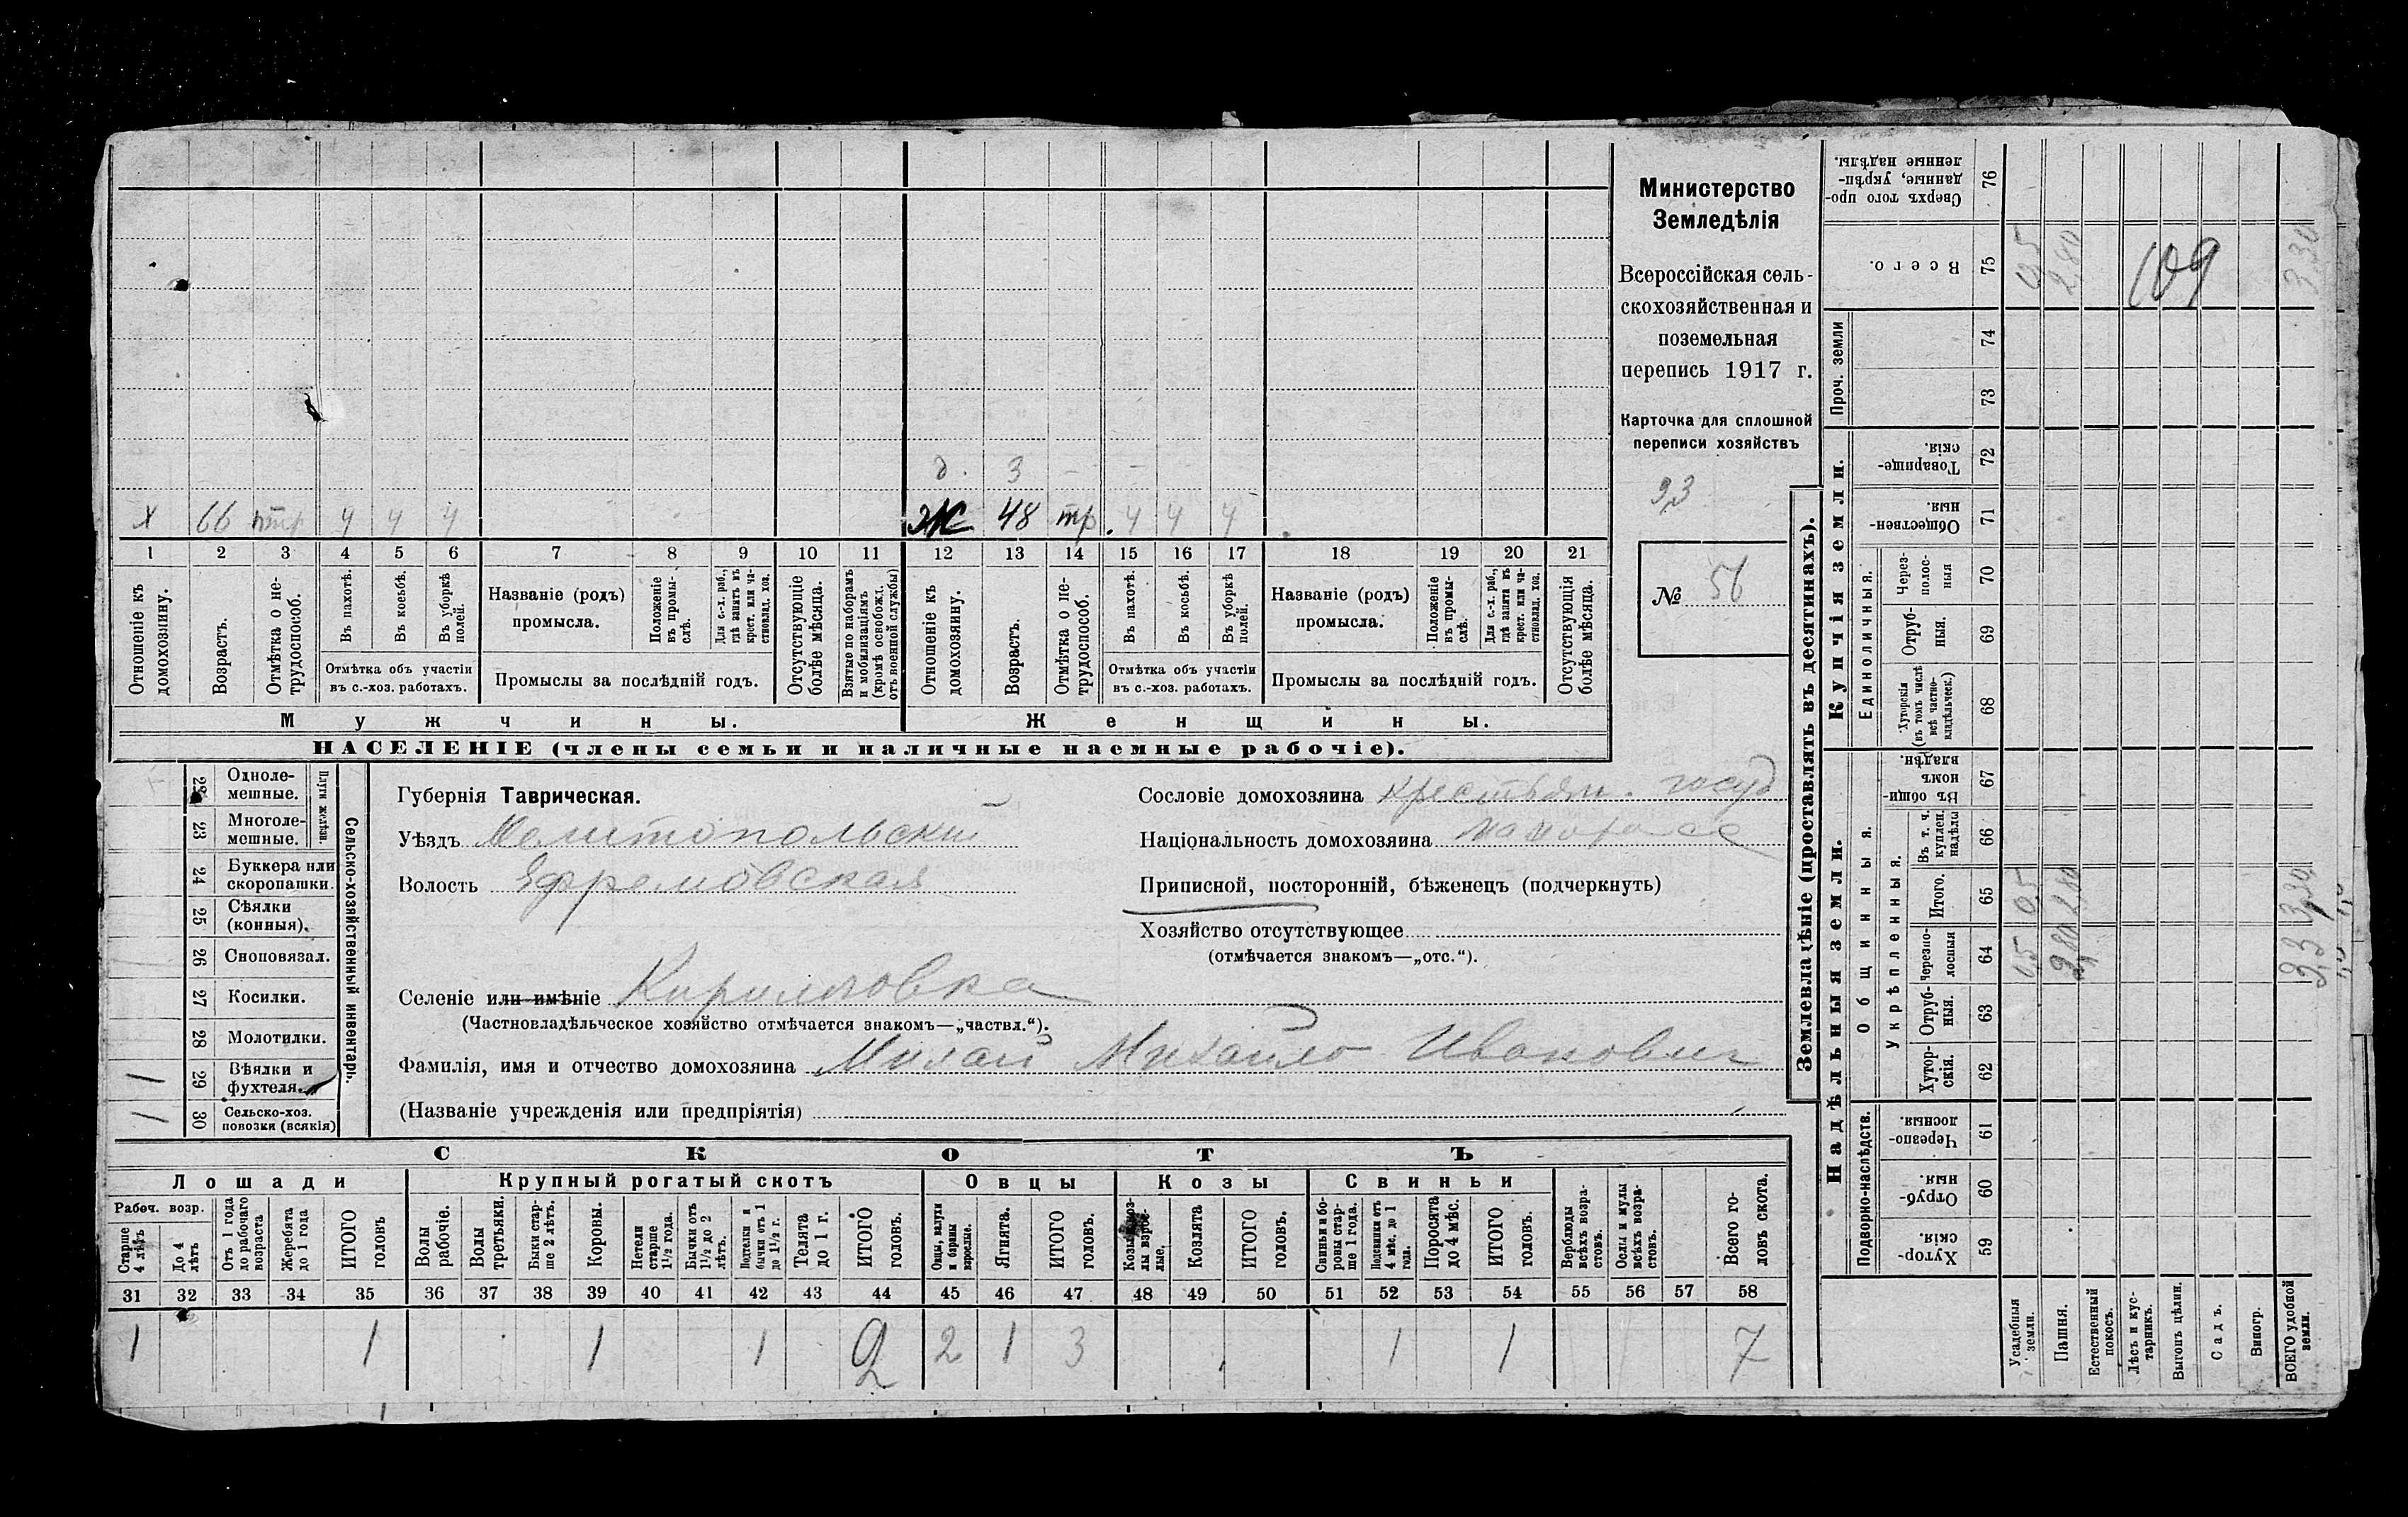 Министерство
Земледѣлія
Всероссійская сель-
скохозяйственная и
поземельная
перепись 1917 г.
Карточка для сплошной
переписи хозяйствъ
93
№ 56
д. 3 - -
х 66 4 4 4 Ж 48 тр. 4 4 4
1 2 3 4 5 6 7 8 9 10 11 12 13 14 15 16 17 18 19 20 21
Отношеніе къ домохозяину.
Возрастъ.
Отмѣтка о не-трудоспособ.
Въ пахотѣ.
Въ косьбѣ.
Въ уборкѣ полей.
Отмѣтка объ участіи
въ с.-хоз. работахъ.
Названіе (родъ)
промысла.
Положеніе въ промы-слѣ.
Для с.-х. раб., гдѣ занятъ въ крест. или ча-стновлад. хоз.
Промыслы за послѣдній годъ.
Отсутствующіе болѣе мѣсяца.
Взятые по наборамъ и мобилизаціямъ (кромѣ освобожд. отъ военной службы)
Отношеніе къ домохозяину.
Возрастъ.
Отмѣтка о не-трудоспособ.
Въ пахотѣ.
Въ косьбѣ.
Въ уборкѣ полей.
Отмѣтка объ участіи
въ с.-хоз. работахъ.
Названіе (родъ)
промысла.
Положеніе въ промы-слѣ.
Для с.-х. раб., гдѣ занята въ крест. или ча-стновлад. хоз.
Промыслы за послѣдній годъ.
Отсутствующія болѣе мѣсяца.
Мужчины. Женщины.
НАСЕЛЕНІЕ (члены семьи и наличные наемные рабочіе).
Сельско-хозяйственный инвентарь.
Плуги желѣзн.
22 Одноле-мешные.
23 Многоле-мешные.
24 Буккера или скоропашки.
25 Сѣялки (конныя).
26 Сноповязал.
27 Косилки.
28 Молотилки.
1 29 Вѣялки и фухтеля.
1 30 Сельско-хоз. повозки (всякія)
Губернія Таврическая.
Уѣздъ Мелитопольский
Волость Ефремовская
Селеніе или имѣніе Кирилловка
(Частновладѣльческое хозяйство отмѣчается знакомъ—„частвл.“).
Фамилія, имя и отчество домохозяина Михайло Иванович
(Названіе учрежденія или предпріятія)
Сословіе домохозяина крестьян. госуд
Національность домохозяина малоросс
Приписной, посторонній, бѣженецъ (подчеркнуть)
Хозяйство отсутствующее
(отмѣчается знакомъ—„отс.“).
СКОТЪ
Лошади Крупный рогатый скотъ Овцы Козы Свиньи
Рабоч. возр.
Старше 4 лѣтъ
До 4 лѣтъ
Отъ 1 года до рабочаго возраста
Жеребята до 1 года
ИТОГО головъ
Волы рабочіе.
Волы третьяки.
Быки стар-ше 2 лѣтъ.
Коровы.
Нетели старше 1½ года.
Бычки отъ 1½ до 2 лѣтъ.
Подтелки и бычки отъ 1 до 1½ г.
Телята до 1 г.
ИТОГО головъ.
Овцы, валухи и бараны взрослые.
Ягнята.
ИТОГО головъ.
Козы и коз-лы взрос-лые,
Козлята
ИТОГО головъ.
Свиньи и бо-ровы стар-ше 1 года.
Подсвинки отъ 4 мѣс. до 1 года.
Поросята до 4 мѣс.
ИТОГО головъ.
Верблюды всѣхъ возра-стовъ.
Ослы и мулы всѣхъ возра-стовъ.
Всего го-ловъ скота.
31 32 33 34 35 36 37 38 39 40 41 42 43 44 45 46 47 48 49 50 51 52 53 54 55 56 57 58
1 1 1 1 2 2 1 3 1 1 7
Землевладѣніе (проставлять въ десятинахъ).
Надѣльныя земли. Купчія земли. Проч. земли
Подворно-наслѣдств.
Общинныя.
Укрѣпленныя.
Единоличныя.
Хутор-скія. 59
Отруб-ныя. 60
Черезпо-лосныя 61
Хутор-скія. 62
Отруб-ныя. 63
Черезпо-лосныя 64
Итого. 65
Въ т. ч. куплен. надѣлы 66
Въ общин-номъ владѣн. 67
Хуторскія (въ томъ числѣ всѣ частно-владѣльческ.) 68
Отруб-ныя. 69
Через-полос-ныя 70
Обществен-ныя 71
Товарище-скія. 72
73
74
Всего. 75
Сверхъ того про-данные, укрѣп-ленные надѣлы. 76
Усадебныя земли. 05 0,5 0,5
Пашня. 2,80 2,80 2,80
Естественный покосъ.
Лѣсъ и кус-тарникъ.
Выгонъ цѣлин.
Садъ.
Виногр.
ВСЕГО удобной земли. 3,3 3,30 3,30
109